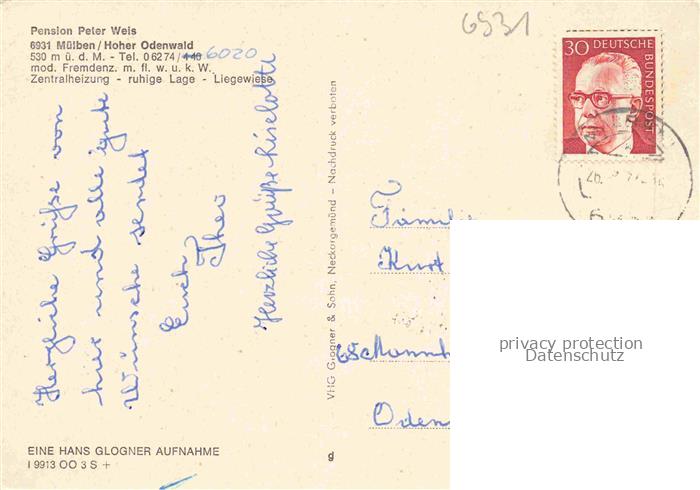 Pension Peter Weis
6931 Mülben/Hoher Odenwald
530 m ü. d. M. - Tel. 06274/440 6020
mod. Fremdenz. m. fl. w. u. k. W.
Zentralheizung - ruhige Lage - Liegewiese
Herzliche Grüße von
hier und alle gute
Wünsche sendet
Euch
Theo
Herzliche Grüße Liselotte
EINE HANS GLOGNER AUFNAHME
I 9913 OO 3 S +
VHG Glogner & Sohn, Neckargemünd - Nachdruck verboten
g
6931
30 DEUTSCHE
BUNDESPOST
Familie
Kurt
68 Mannh
Oden
privacy protection
Datenschutz